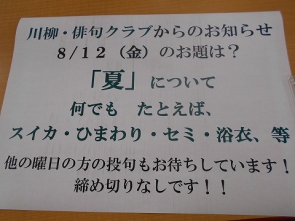 川柳・俳句クラブからのお知らせ
8/12(金)のお題は？
「夏」について
何でも たとえば、
スイカ・ひまわり・セミ・浴衣、等
他の曜日の方の投句もお待ちしています！
締め切りなしです！！